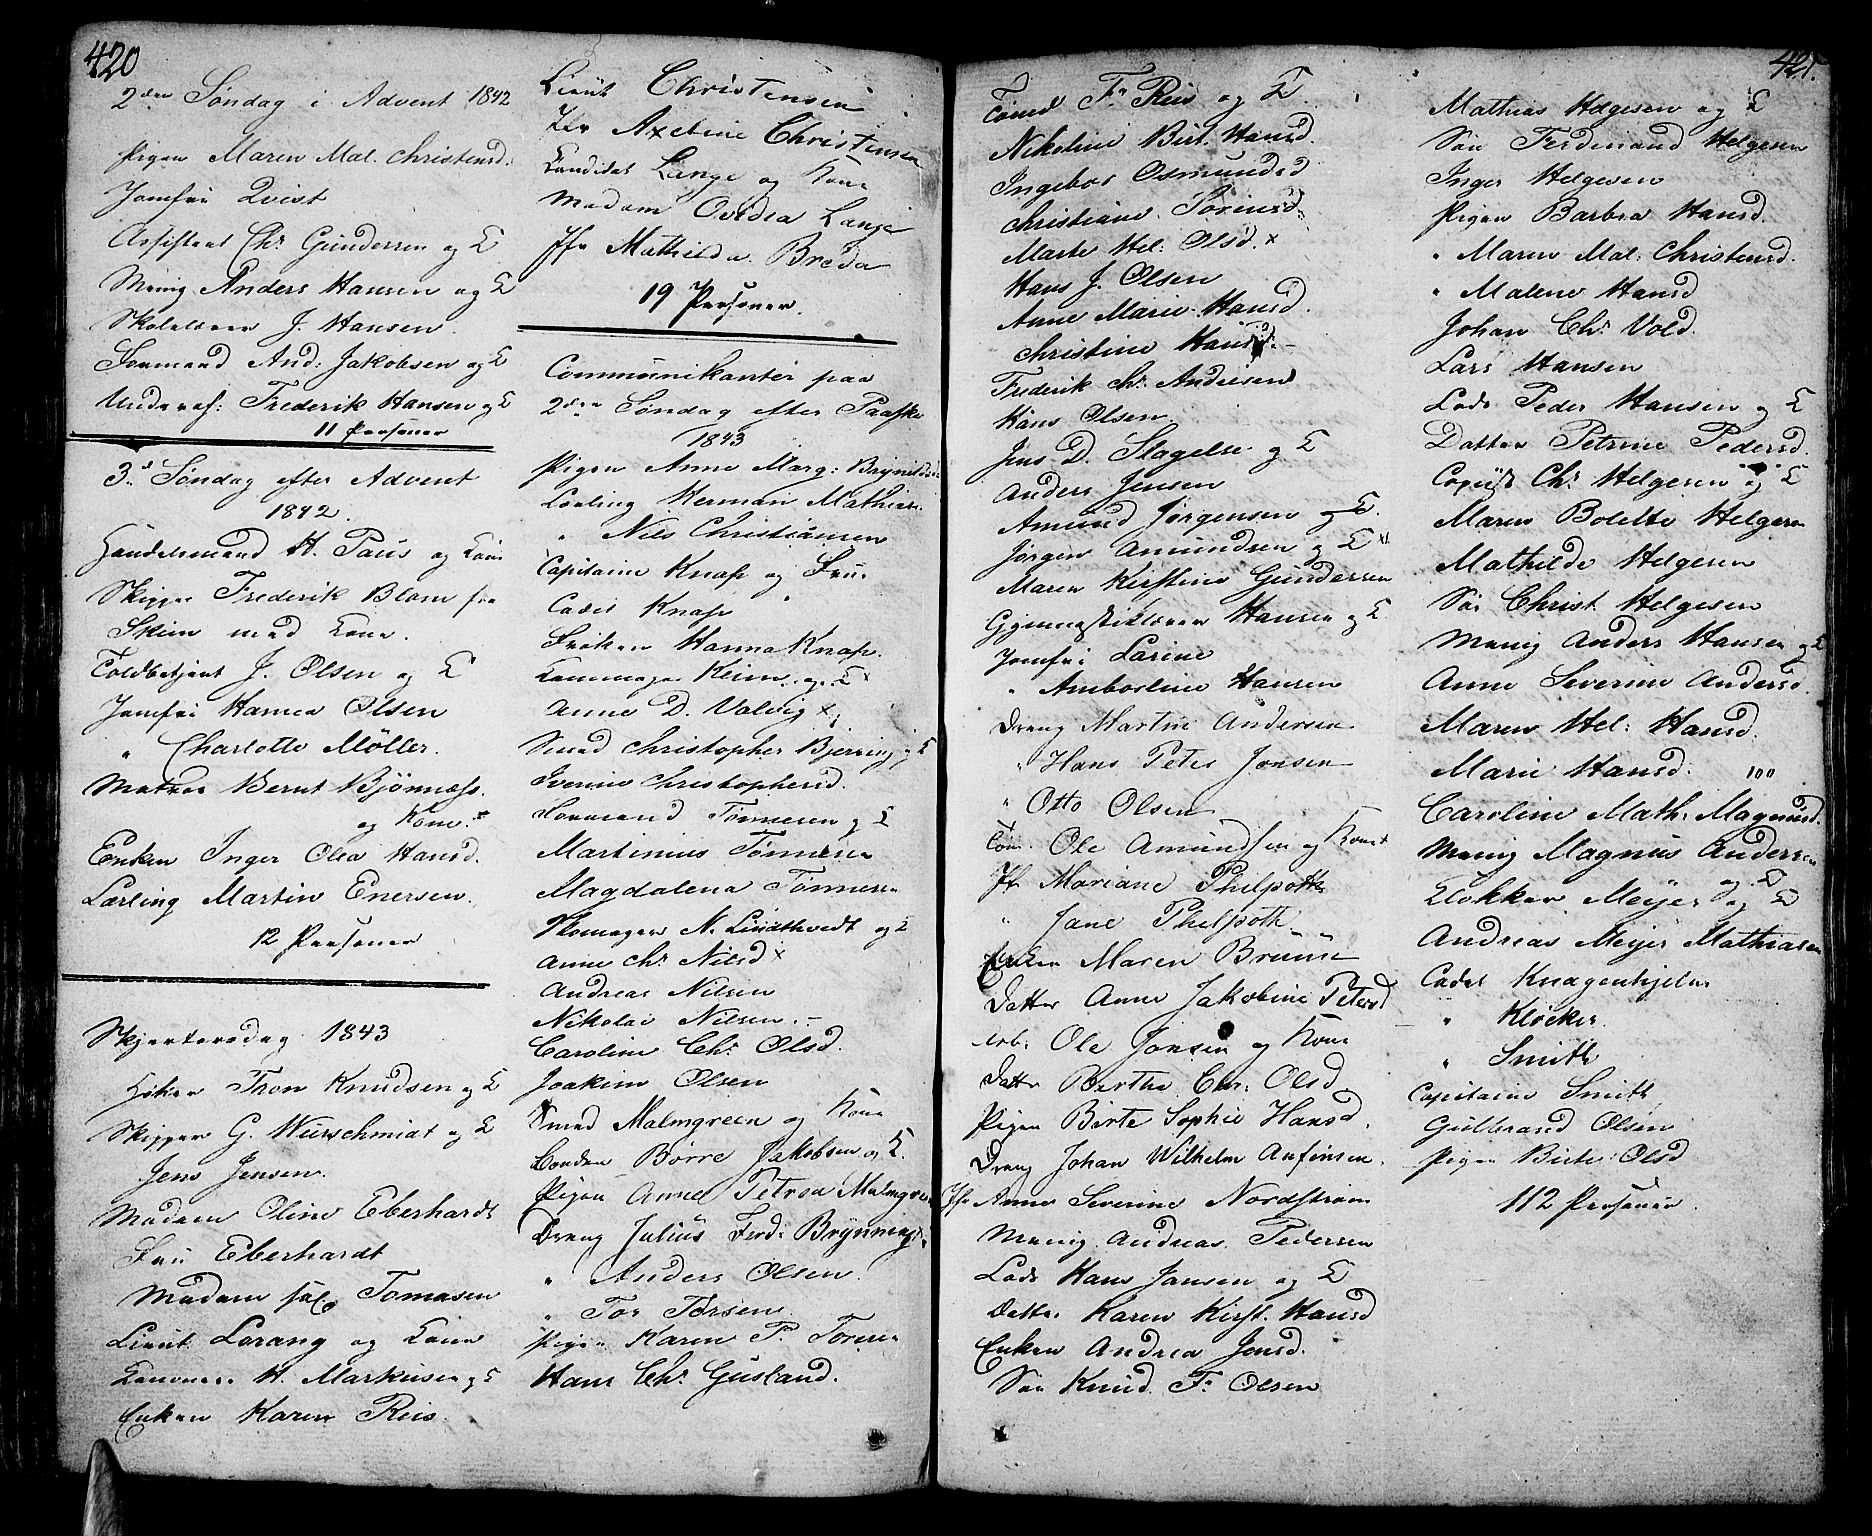 420
2den Søndag i Advent 1842
Pigen Maren Mal. Christensd.
Jomfrú Qvist
Assistent Chr Gúndersen og K
Menig Anders Hansen og K
Skolelærer J. Hansen.
Formand And: Jakobsen og K
Underof: Frederik Hansen og K
11 Personer
3d Søndag efter Advent
1842.
Handelsmand H. Paus og Kone
Skipper Frederik Blom fra
Skien med Kone.
Toldbetjent J. Olsen og K
Jomfrú Hanna Olsen
" Charlotte Möller.
Matros Bernt Bjönnæss.
og Kone.
Enken Inger Olea Hansd.
Lærling Martin Enersen.
12 Personer
Skjærtorsdag 1843
Høker Thon Knudsen og K
Skipper G. Würschmidt og K
Jens Jensen.
Madam Oline Eberhardt
Frú Eberhardt
Madam sal. Tomasen
Lieut. Lorang og Kone
Kanoneer H. Markúsen og K
Enken Karen Reis.
Lieut Christensen
Jfr Axeline Christensen
Kandidat Lange og Kone
Madam Ovidia Lange
Jfr Mathilda Breda
19 Personer.
Commúnikanter paa
2den Søndag efter Paaske
1843
Pigen Anne Marg: Brynildsd.
Lærling Herman Mathies.
" Nils Christiansen
Capitaine Knap og Frue
Cadet Knap "
Frøken Hanna Knap.
Kammager Keim og K x
Anne D. Valvig x
Smed Christopher Bjerring og K
Iverine Christophersd.
Formand Tønnesen og K
Martinius Tønnesen
Magdalena Tønnesen
Skomager N. Lindthvedt og K
Anne Chr Nilsd x
Andreas Nilsen
Nikolai Nilsen.
Caroline Chr Olsd.
Joakim Olsen
Smed Malmgreen og Kone
Bonden Börre Jakobsen og K.
Pigen Anne Petrea Malmgreen
Dreng Julius Ferd: Brynning
" Anders Olsen.
" Tor Torsen
Pigen Karen P. Toresen
Hans Chr. Gusland.
421.
Tømd Fr Reis og K
Nikoline Birt. Hansd.
Ingebor Osmundsd
Christiane Sørensd.
Marte Hel: Olsd. x
Hans J. Olsen
Anne Marie Hansd.
Christine Hansd.
Frederik Chr. Andresen
Hans Olsen
Jens D. Slagelse og K
Anders Jensen
Amund Jørgensen og K.
Jørgen Amundsen og K
Maren Kirstine Gúndersen
Gymnastiklærer Hansen og K.
Jomfrú Larine
" Ambortine Hansen
Dreng Martin Andersen
" Hans Peter Jonsen
" Otto Olsen
Tøm. Ole Amundsen og Kone
Jfr Mariane Philpotth
" Jane Philpoth
Enken Maren Brúún
Datter Anne Jakobine Petersd
Arb: Ole Jonsen og Kone
Datter Berthe Chr: Olsd
Pigen Birte Sophie Hansd.
Dreng Johan Wilhelm Anfinsen.
Jfr Anne Severine Nordstrøm
Menig Andreas Pedersen
Lods Hans Jansen og K
Datter Karen Kirst. Hansd
Enken Andrea Jensd.
Søn Knud Fr Olsen
Mathias Helgesen og K
Søn Ferdinand Helgesen
Inger Helgesen
Pigen Barbra Hansd.
" Maren Mal: Christensd.
" Malene Hansd
Johan Chr. Vold.
Lars Hansen
Lods Peder Hansen og K
Datter Petrine Pedersd.
Copiist Chr. Helgesen og K
Maren Bolette Helgesen
Mathilde Helgesen
Søn Christ. Helgesen
Menig Anders Hansen og K
Anne Severine Andersd.
Maren Hel: Hansd.
Marie Hansd. 100
Caroline Math: Magnúsd.
Menig Magnus Andersen
og K
Klokker Meijer og K
Andreas Meijer Mathiasen
Cadet Knagenhjelm
" Kløcker.
" Smith
Capitaine Smith
Gúlbrand Olsen
Pigen Birte Olsd
112 Personer.